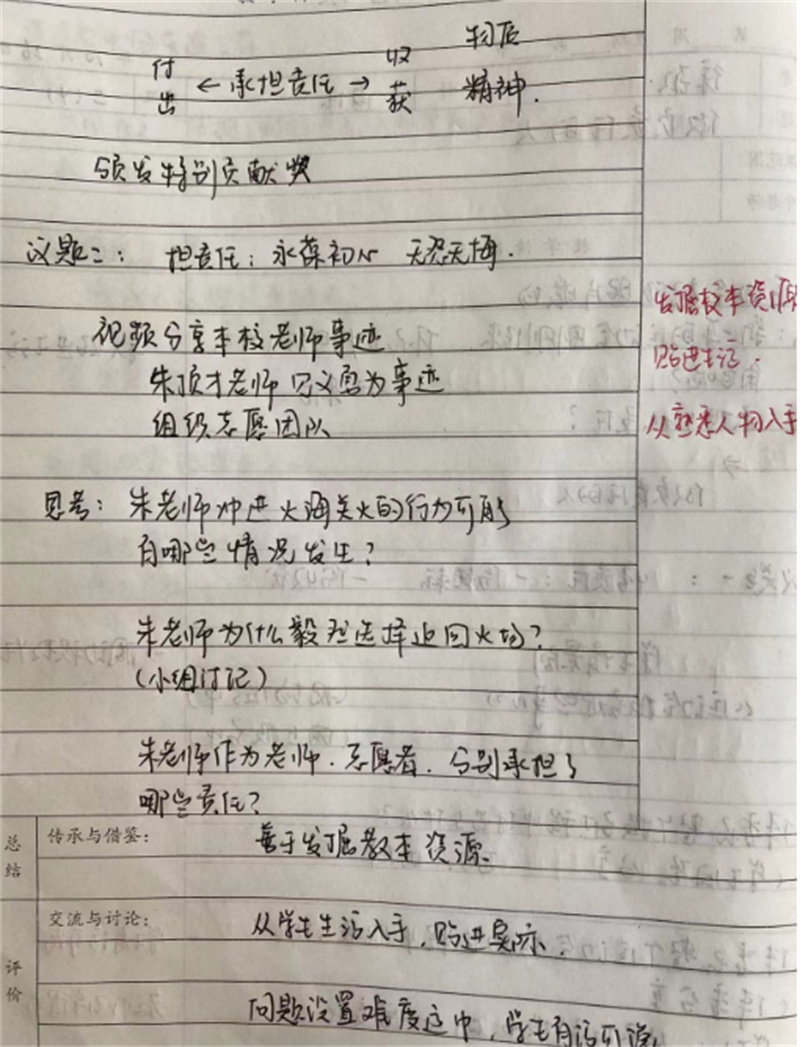 付出 ← 承担责任 → 收获 物质
精神.
颁发特别贡献奖
议题二: 担责任: 永葆初心 无怨无悔.
发掘校本资源
视频分享本校老师事迹
贴进生活.
朱顶才老师 见义勇为事迹
组织志愿团队
从熟悉人物入手
思考: 朱老师冲进火海关火的行为可能
有哪些情况发生?
朱老师为什么毅然选择返回火场?
(小组讨论)
朱老师作为老师.志愿者.分别承担了
哪些责任?
总结
传承与借鉴: 善于发掘教本资源.
评价
交流与讨论: 从学生生活入手,贴进实际.
问题设置难度适中,学生有话可说.